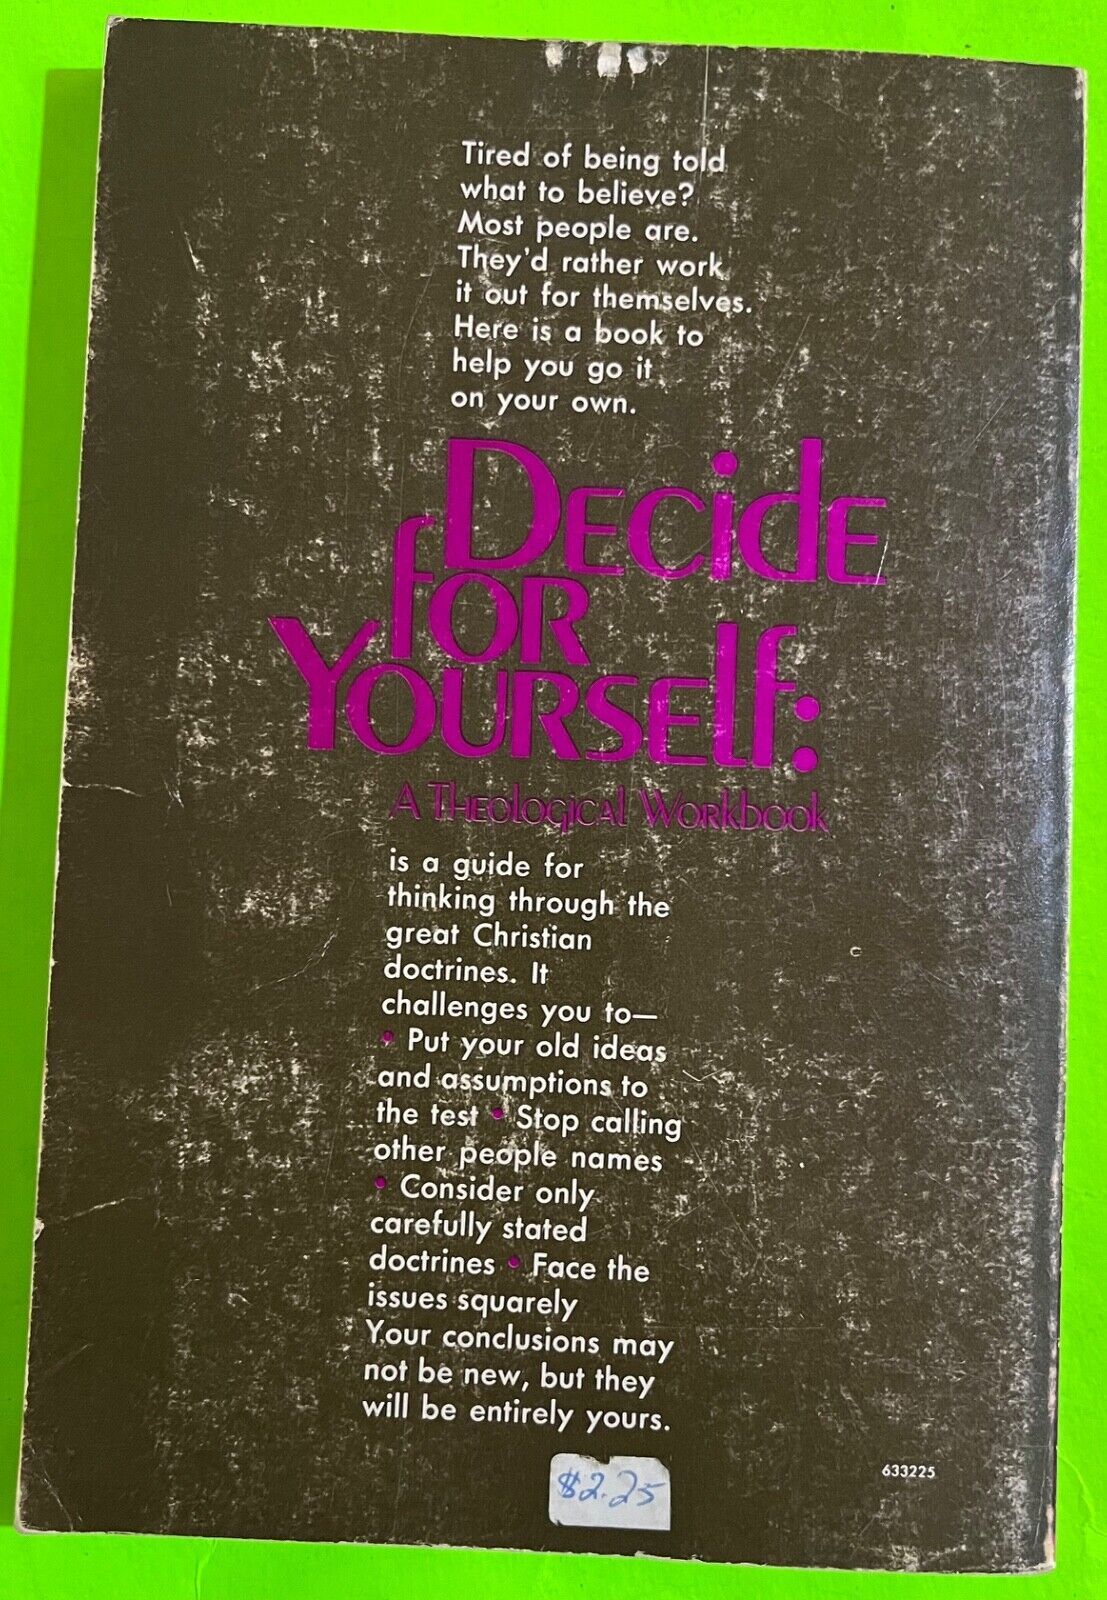 Tired of being told
what to believe?
Most people are.
They'd rather work
it out for themselves.
Here is a book to
help you go it
on your own.
Decide
for
Yourself:
A Theological Workbook
is a guide for
thinking through the
great Christian
doctrines. It
challenges you to—
• Put your old ideas
and assumptions to
the test • Stop calling
other people names
• Consider only
carefully stated
doctrines • Face the
issues squarely
Your conclusions may
not be new, but they
will be entirely yours.
633225
$2.25